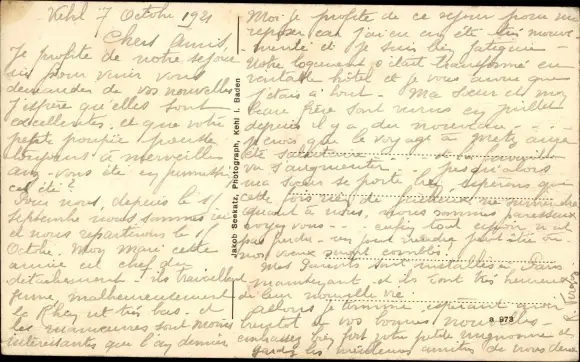 Kehl 7 Octobre 1921
Chers Amis,
Je profite de notre séjour
ici pour venir vous
demander de vos nouvelles
j'espère qu'elles sont
excellentes, et que votre
petite poupée pousse
toujours à merveille
avez-vous été en
cet été ?
Pour nous, depuis le 1er
septembre nous sommes ici
et nous repartirons le 15
Octobre. Mon Mari cette
année est chef du
détachement. ils travaillent
ferme malheureusement
le Rhin est très bas. et
les manœuvres sont moins
intéressantes que l'an dernier
Jakob Seekatz, Photograph, Kehl i. Baden
Moi je profite de ce séjour pour me
reposer car j'ai eu un été très mouve-
menté et je suis bien fatiguée
notre logement s'était transformé en
véritable hôtel et je vous avoue que
j'étais à bout. Ma sœur et mon
beau frère sont venus en juillet
depuis il y a du nouveau
je crois que le voyage à Metz, aura
été salutaire la famille
va s'augmenter jusqu'alors
ma sœur se porte bien, espérons que
cette fois rien de fâcheux ne viendra
Quant à nous, nous sommes paresseux
voyez-vous enfin tout espoir n'est
pas perdu un jour viendra peut être où
nos vœux seront comblés.
Mes Parents sont installés à Paris
maintenant et ils sont très heureux
de leur nouvelle vie.
Allons je termine espérant avoir
bientôt de vos bonnes nouvelles
embrassez bien fort votre petite mignonne et
les meilleures amitiés de nous deux
a 973